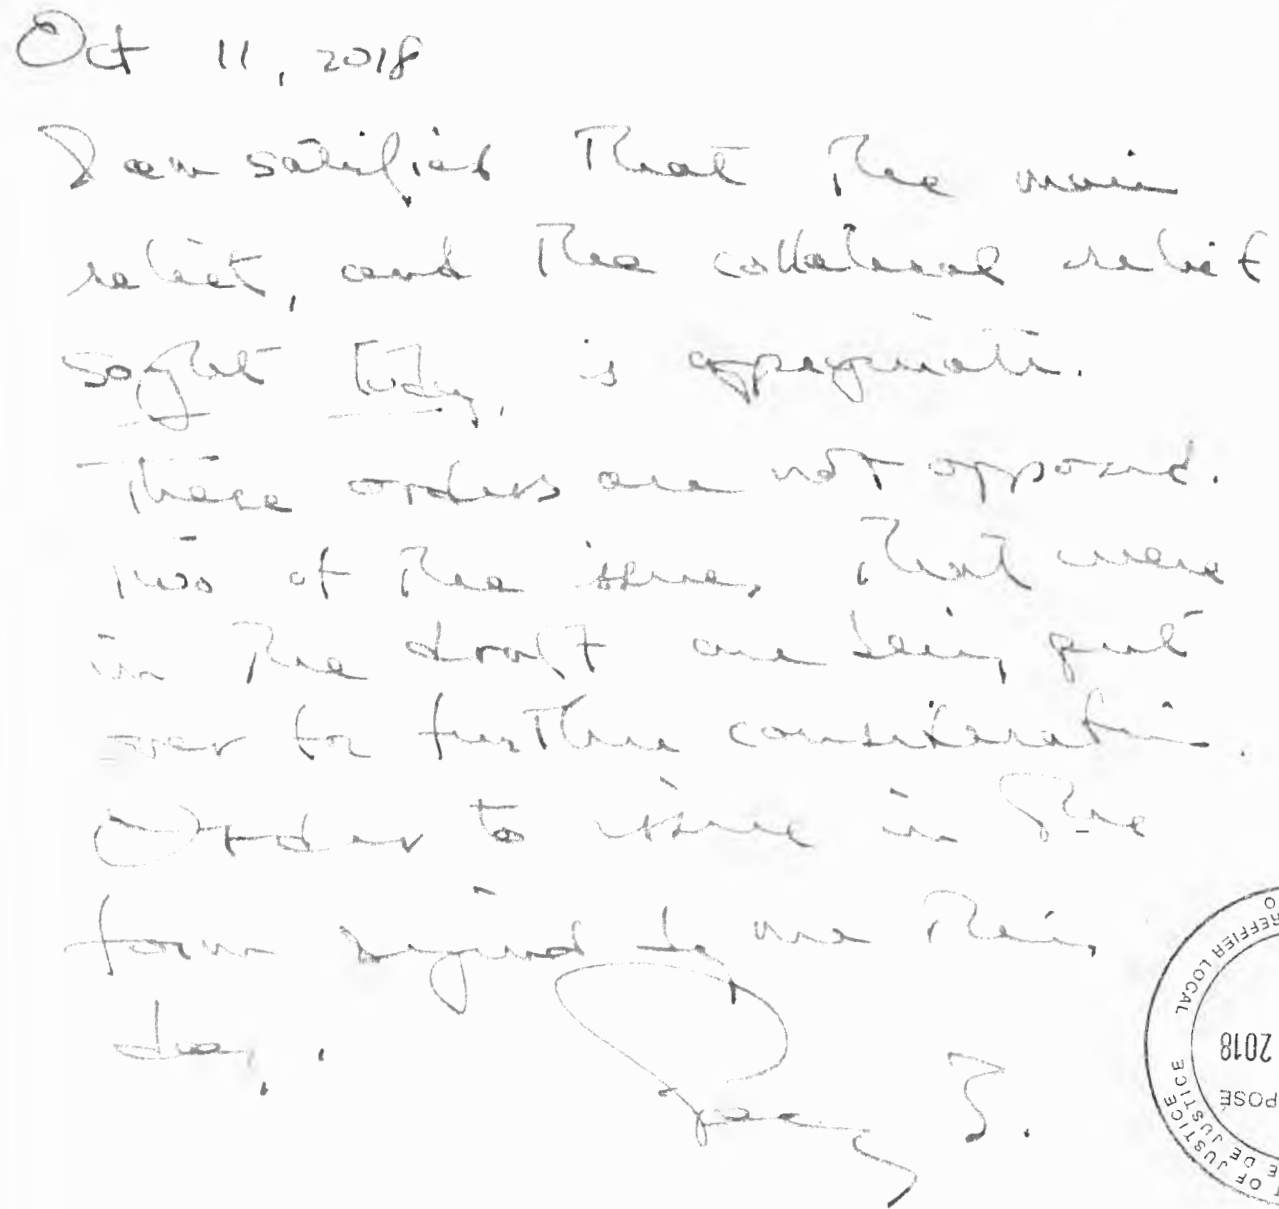 Oct 11, 2018
I am satisfied that the main
relief, and the collateral relief
sought today, is appropriate.
These orders are not opposed.
Two of the issues that were
in the draft are being put
over for further consideration.
Order to issue in the
form signed by me this
day.
J.
GREFFIER LOCAL
2018
OF JUSTICE
DE JUSTICE